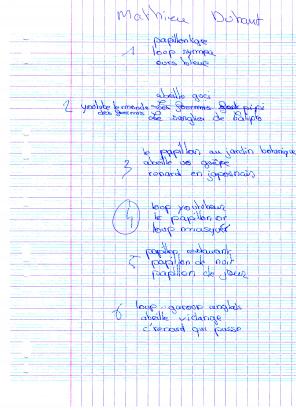 Mathieu Durant
papillontige
1 loup sympa
ours bleue
abeille
2 youtube le monde Les
des Le sanglier de
le papillon au jardin botanique
3 abeille ou guêpe
renard en japonais
4 loup youtubeur
le papillon or
loup masqué
papillon restaurant
5 papillon de nuit
papillon de jour
6 loup garou anglais
abeille vidange
c'renard qui passe